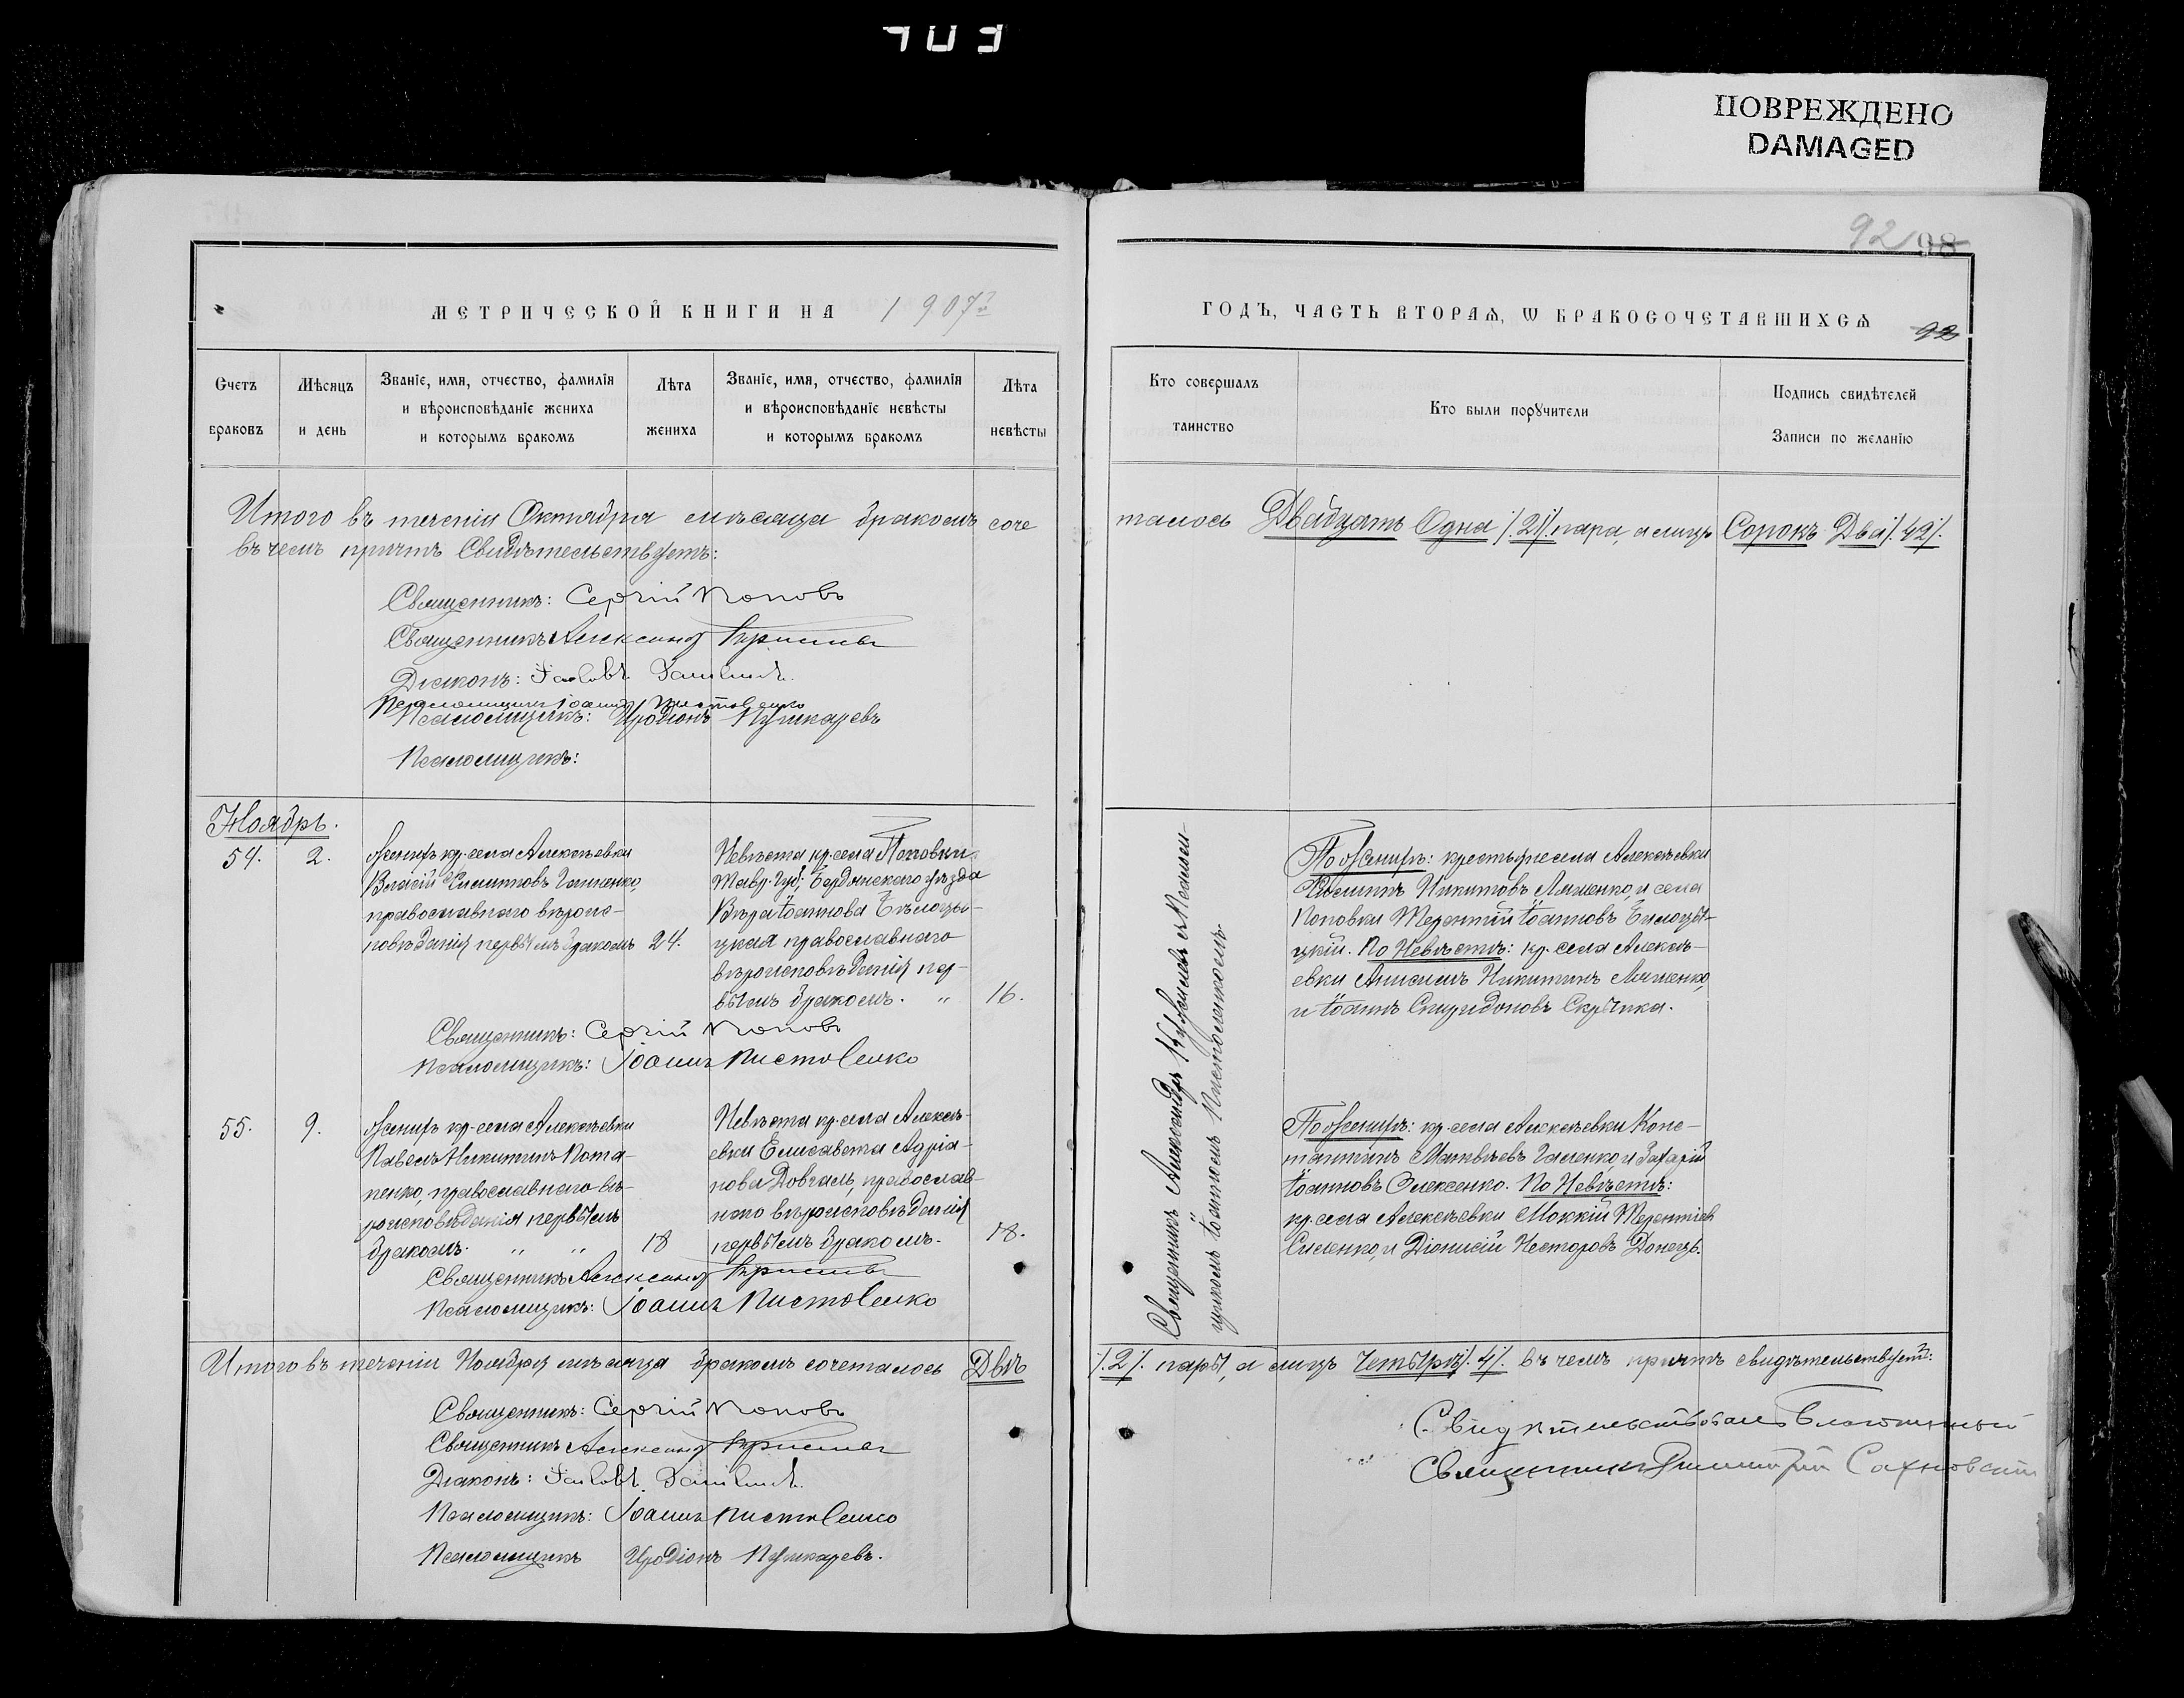 703
ПОВРЕЖДЕНО
DAMAGED
92 98
МЕТРИЧЕСКОЙ КНИГИ НА 1907 г
ГОДЪ, ЧАСТЬ ВТОРАѦ, Ѡ БРАКОСОЧЕТАВШИХСѦ
92
Счетъ браковъ
Мѣсяцъ и день
Званіе, имя, отчество, фамилія
и вѣроисповѣданіе жениха
и которымъ бракомъ
Лѣта жениха
Званіе, имя, отчество, фамилія
и вѣроисповѣданіе невѣсты
и которымъ бракомъ
Лѣта невѣсты
Кто совершалъ таинство
Кто были порꙋчители
Подпись свидѣтелей
Записи по желанію
Итого въ теченіи Октября мѣсяца бракомъ соче
талось Двадцать Одна /.21/. пара, а лицъ Сорокъ Два /.42/.
въ чемъ причтъ свидѣтельствуетъ:
Священникъ: Сергій Поповъ
Священникъ Александр
Діаконъ:
Псаломщикъ Іоаннъ
Псаломщикъ: Иродіонъ Пушкаревъ
Псаломщикъ:
Ноябрь.
54. 2.
Женихъ кр. села Алексѣевки
Власій
православнаго вѣроис-
повѣданія первымъ бракомъ 24.
Невѣста кр. села Поповки
Тавр. губ; Бердянскаго уѣзда
Вѣра Іоаннова Бѣлоцы-
цкая православнаго
вѣроисповѣданія пер-
вымъ бракомъ. " 16.
Священникъ: Сергій Поповъ
Псаломщикъ: Іоаннъ
Священникъ Александръ съ Псалом-
щикомъ Іоанномъ
По Женихѣ: крестьяне села Алексѣевки
Никитовъ и села
Поповки Терентій Іоанновъ
цкій. По Невѣстѣ: кр. села Алексѣ-
евки Никитинъ
и Іоаннъ Спиридоновъ
55. 9.
Женихъ кр. села Алексѣевки
Павелъ Никитинъ Пота-
пенко, православнаго вѣ-
роисповѣданія первымъ
бракомъ. " " 18
Невѣста кр. села Алексѣ-
евки Елисавета Адріа-
нова Довгаль, православ-
наго вѣроисповѣданія
первымъ бракомъ. 18.
Священникъ Александр
Псаломщикъ: Іоаннъ
По Женихѣ: кр. села Алексѣевки Конс-
тантинъ Матвѣевъ и Захарій
Іоанновъ Олексенко. По Невѣстѣ:
кр. села Алексѣевки Моккій Терентіевъ
и Діонисій Несторовъ Донецъ.
Итого въ теченіи Ноября мѣсяца бракомъ сочеталось Двѣ
/.2/. пары, а лицъ Четыре /.4/. въ чемъ причтъ свидѣтельствуетъ:
Священникъ: Сергій Поповъ
Священникъ Александр
Діаконъ:
Псаломщикъ: Іоаннъ
Псаломщикъ Иродіонъ Пушкаревъ.
Свидѣтельствовалъ Благочинный
Священникъ Димитрій Сахновскій